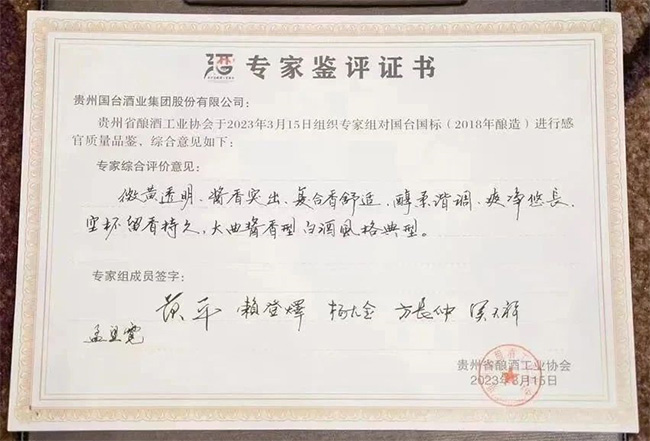 专家鉴评证书
贵州国台酒业集团股份有限公司：
贵州省酿酒工业协会于2023年3月15日组织专家组对国台国标（2018年酿造）进行感
官质量品鉴、综合意见如下：
专家综合评价意见：
微黄透明、酱香突出、复合香舒适，醇柔谐调、爽净悠長、
空杯留香持久，大曲酱香型白酒风格典型。
专家组成员签字：
黄平 賴登燡 杨大金 方長仲
贵州省酿酒工业协会
2023年3月15日